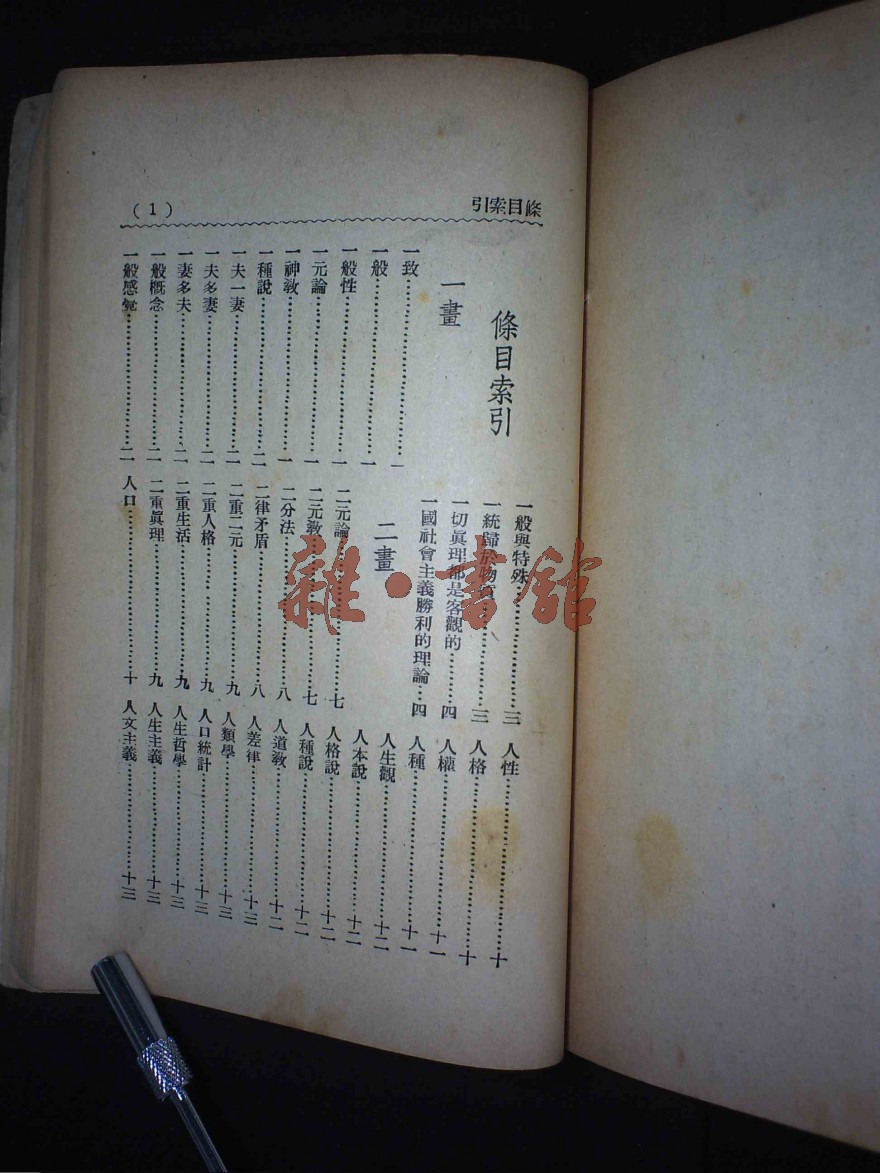 條目索引
(1)
條目索引
一畫
一致……一
一般……一
一般性……一
一元論……一
一神教……一
一種說……二
一夫一妻……二
一夫多妻……二
一妻多夫……二
一般概念……二
一般感覺……二
一般與特殊……三
一統歸於物質……三
一切眞理都是客觀的……四
一國社會主義勝利的理論……四
二畫
二元論……七
二元教……七
二分法……八
二律矛盾……八
二重二元……九
二重人格……九
二重生活……九
二重眞理……九
人口……十
人性……十
人格……十
人權……十一
人種……十一
人生觀……十二
人本說……十二
人格說……十二
人種說……十二
人道教……十二
人差律……十三
人類學……十三
人口統計……十三
人生哲學……十三
人生主義……十三
人文主義……十三
雜·書館